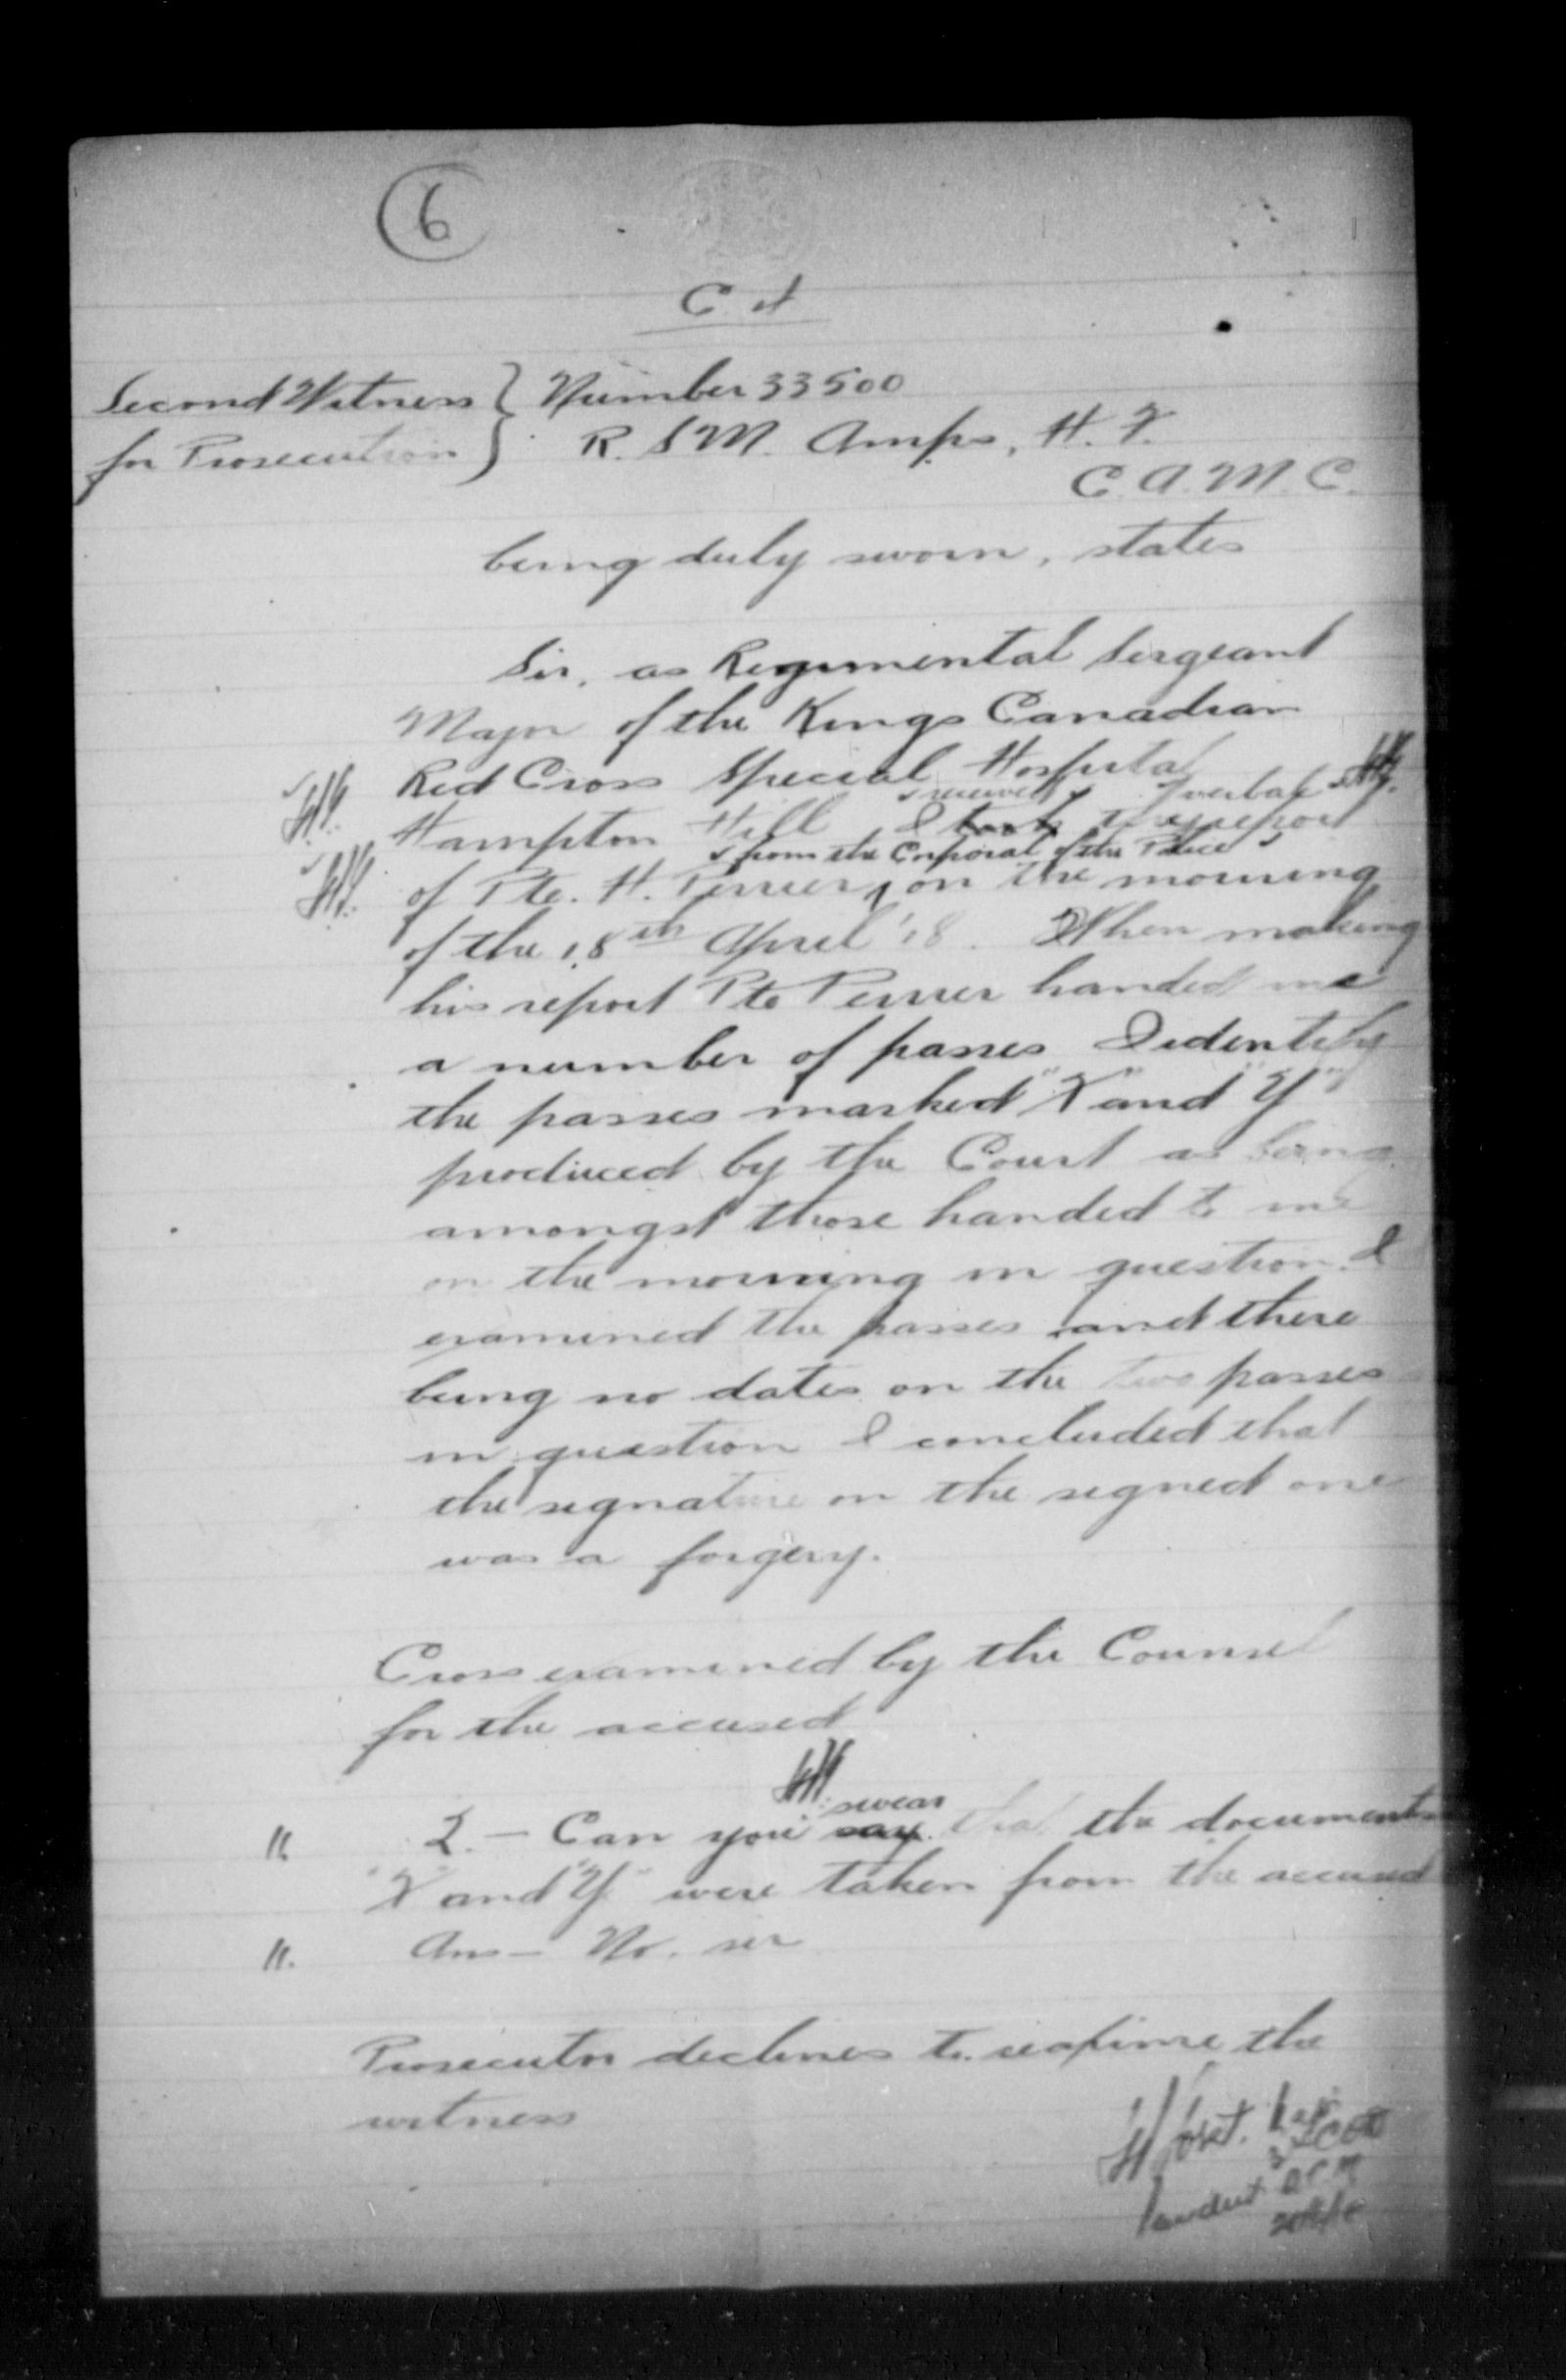 6
Second Witness } Number 33500
for Prosecution } R. S M. Amps, H. F.
C. A. M. C.
being duly sworn, states
Sir, as Regimental Sergeant
Major of the Kings Canadian
Red Cross Special Hospital
received verbal
Hampton Hill I took the report
from the Corporal of the Police
of Pte. H. Perrier, on the morning
of the 18th April '18. When making
his report Pte Perrier handed me
a number of passes I identify
the passes marked "X" and "Y"
produced by the Court as being
amongst those handed to me
on the morning in question. I
examined the passes and there
being no dates on the two passes
in question I concluded that
the signature on the signed one
was a forgery.
Cross examined by the Counsel
for the accused
swear
Q. - Can you say that the documents
"X" and "Y" were taken from the accused
Ans - No. sir
Prosecutor declines to the
witness